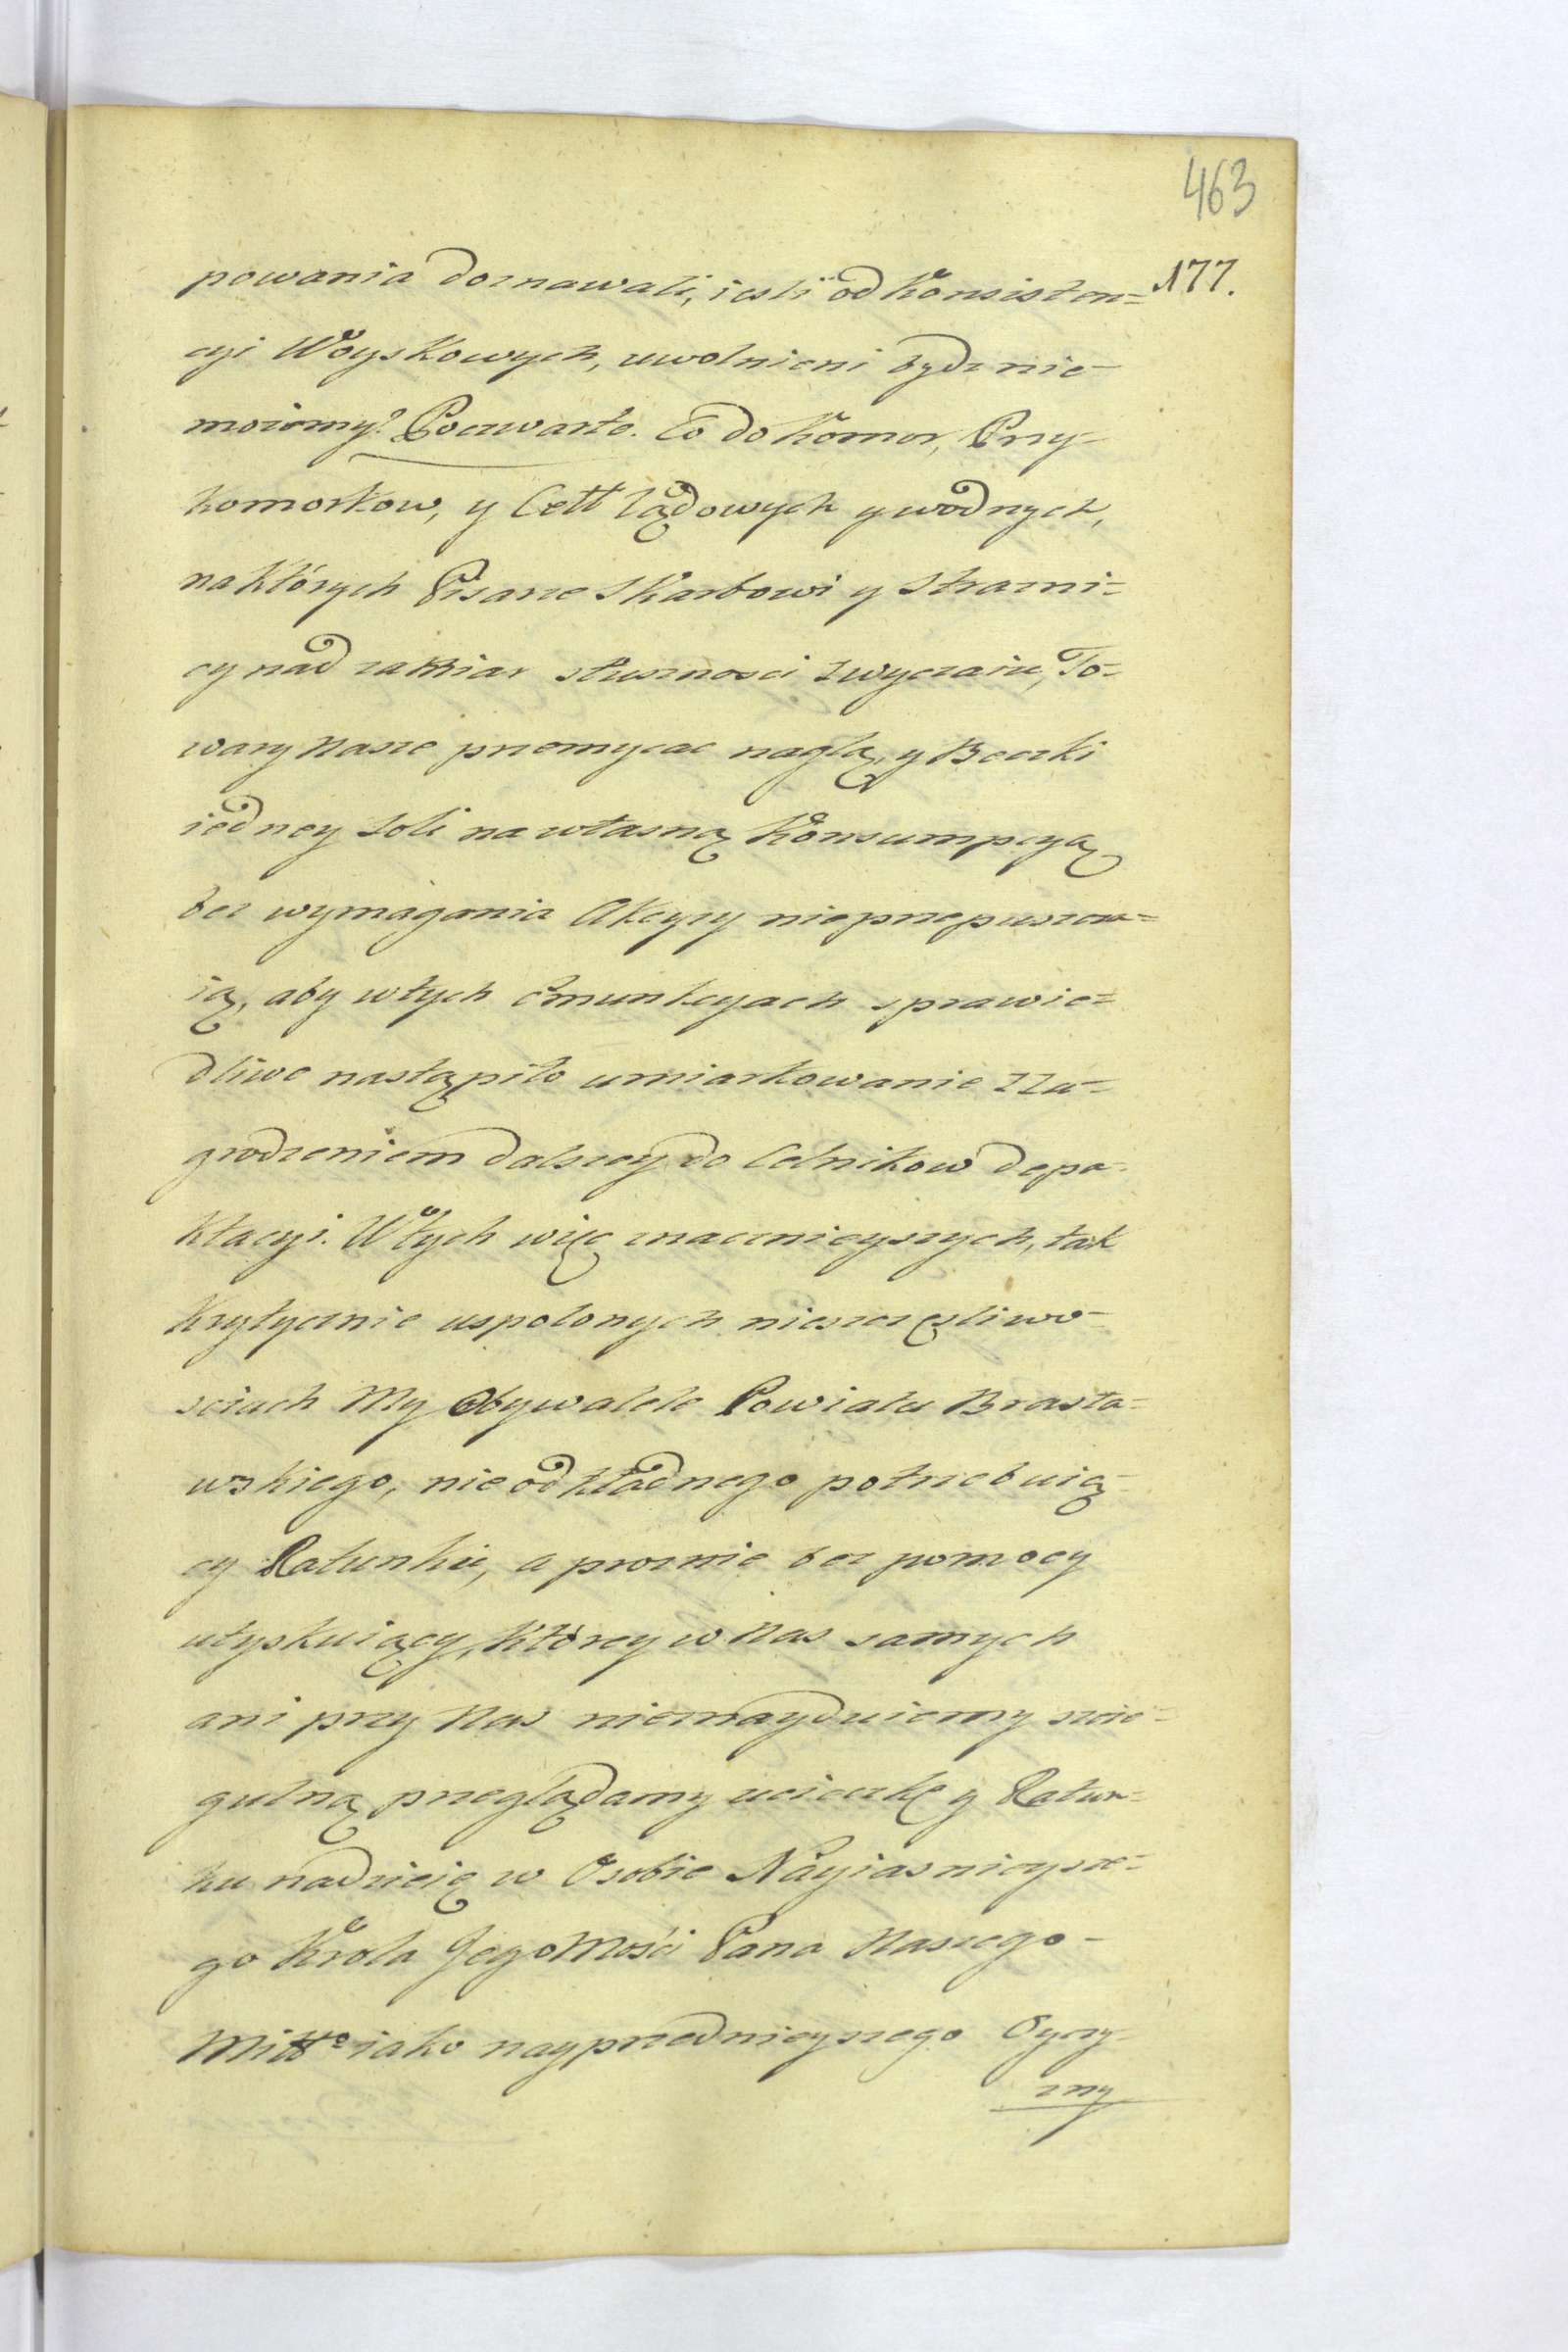 463
177.
powania doznawali, iesli od Konsisten=
cyi Woyskowych, uwolnieni bydz nie-
mozemy? Poczwarte. Co do Komor, Przy-
komorkow, y Cełł lądowych y wodnych,
na których Pisarze Skarbowi y Strazni=
cy nad zamiar słusznosci zwyczaiu, To=
wary Nasze przemycac naglą, y Beczki
iedney Soli na własną Konsumpcyą
bez wymagania Akcyzy nieprzepuszcza=
ią, aby w tych Emunkcyach sprawie=
dliwe nastąpiło umiarkowanie z Na=
grodzeniem dalszey do Celnikow depa-
ktacyi. W tych więc znacznieyszych, tak
Krytycznie uspolonych nieszczęśliwo-
sciach My Obywatele Powiatu Brasła=
wskiego, nieodkładnego potrzebuią-
cy Ratunku, a proznie bez pomocy
utyskuiący, którey w Nas samych
ani przy Nas nieznayduiemy szcze-
gulną przeglądamy ucieczkę y Ratun=
ku nadzieię w Osobie Nayiasnieysze-
go Krola JegoMości Pana Naszego-
Miłłº iako nayprzednieyszego Oyczy-
zny